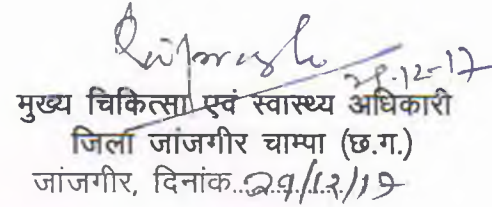 29-12-17
मुख्य चिकित्सा एवं स्वास्थ्य अधिकारी
जिला जांजगीर चाम्पा (छ.ग.)
जांजगीर, दिनांक..29/12/17